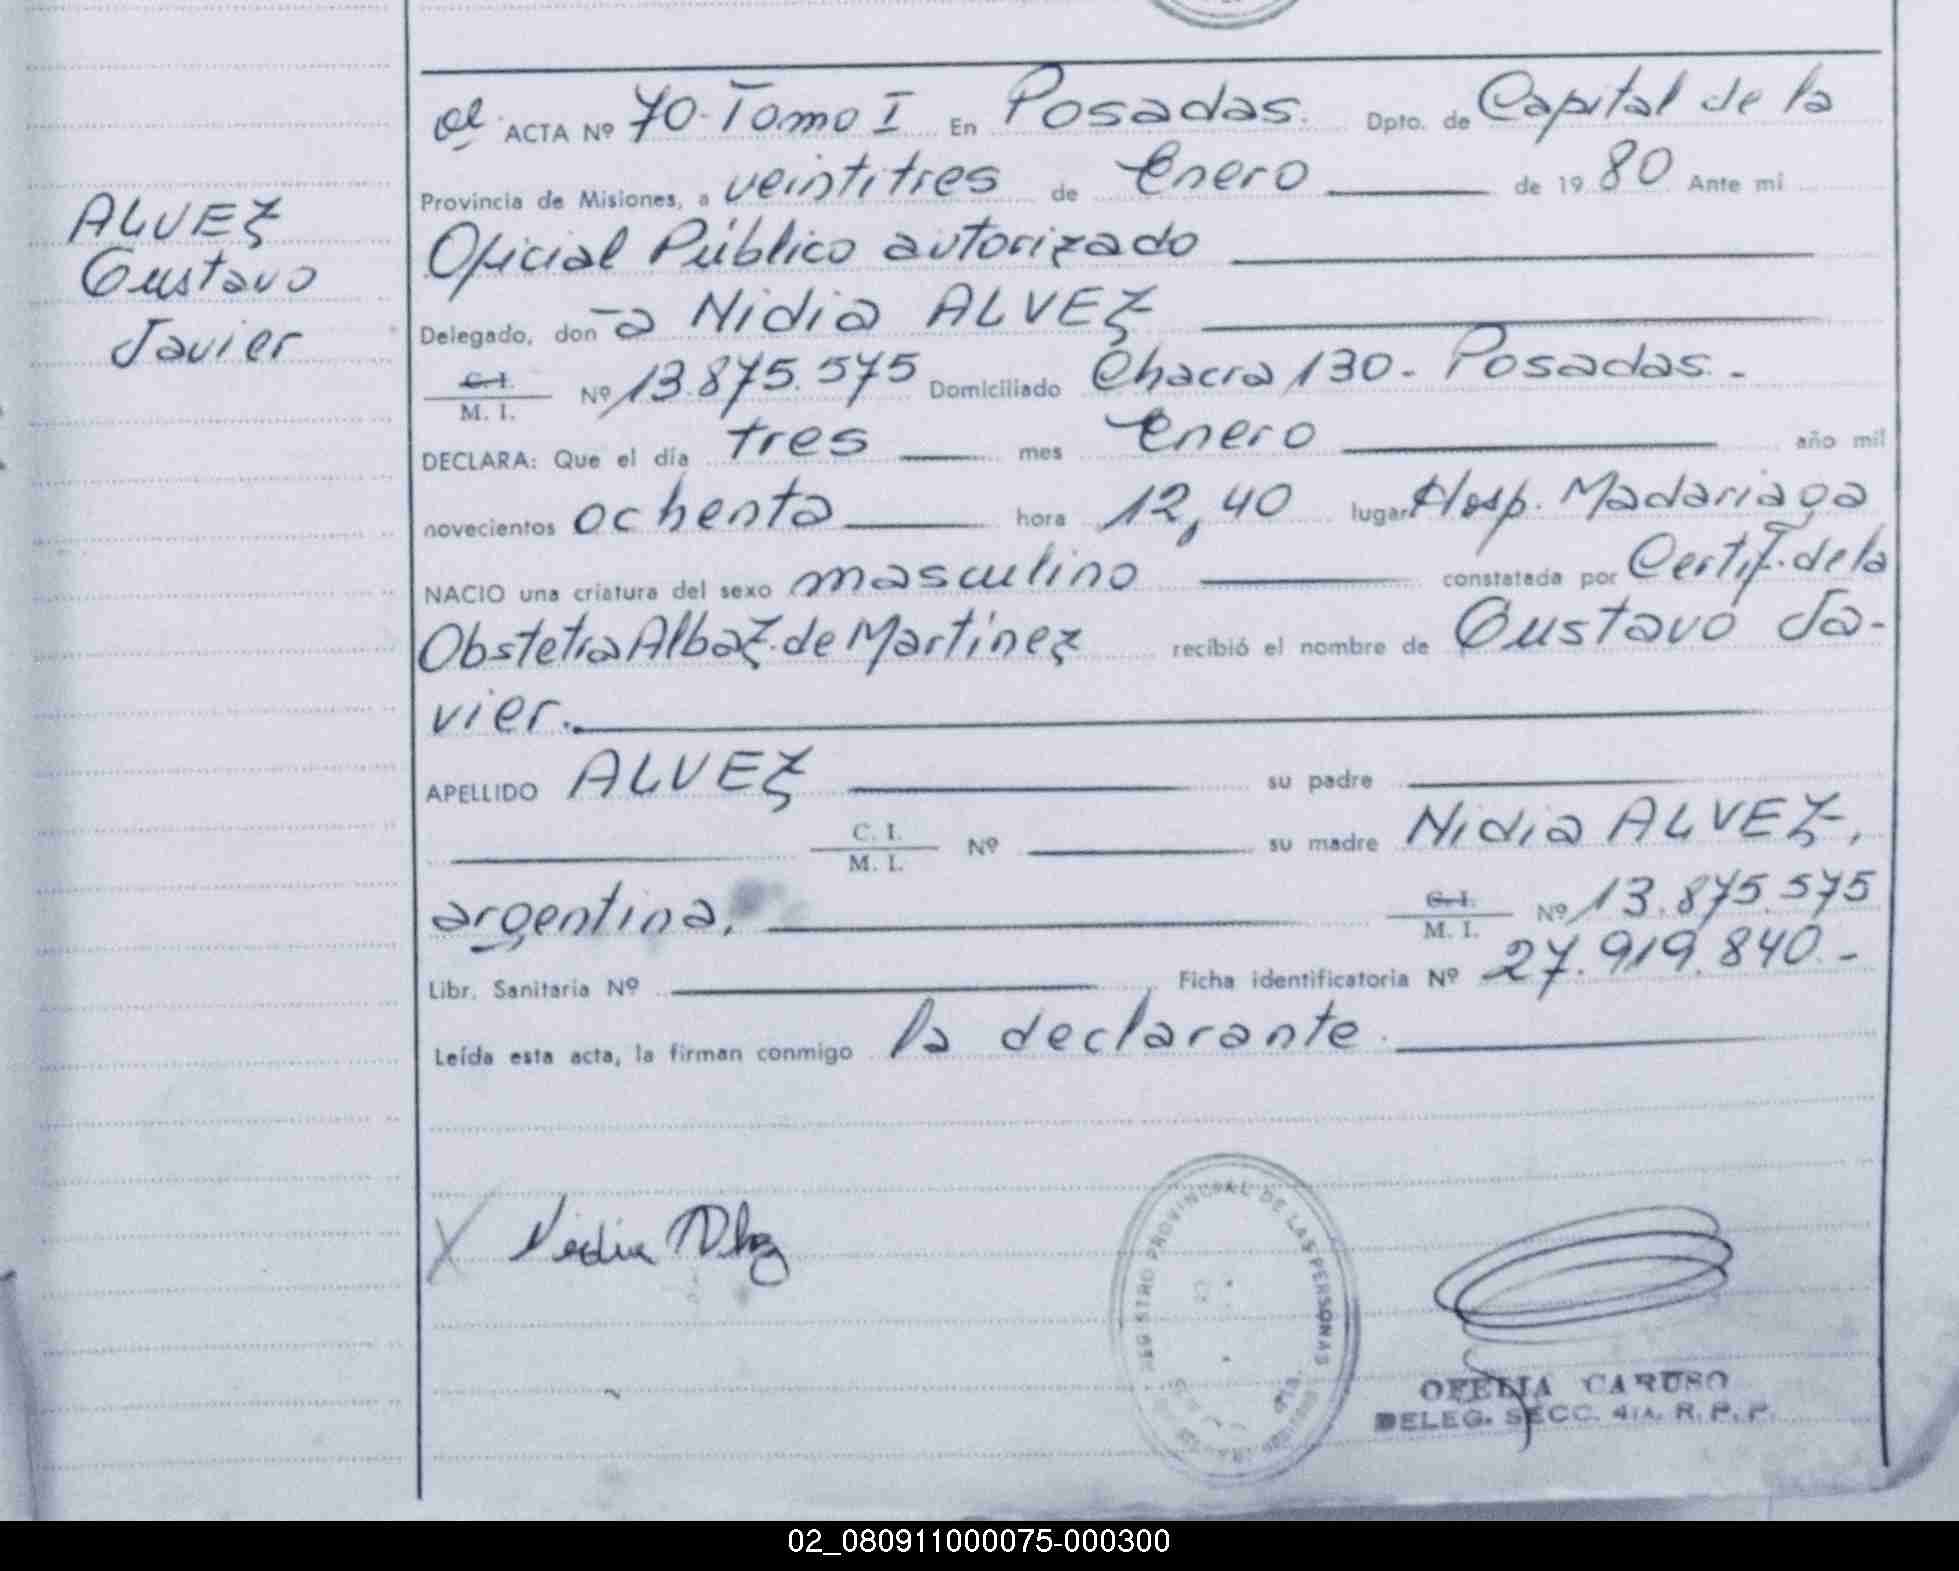 ALVEZ
Gustavo
Javier
ACTA Nº 70-Tomo I En Posadas. Dpto. de Capital de la
Provincia de Misiones, a veintitres de Enero de 1980 Ante mi
Oficial Público autorizado
Delegado, don-a Nidia ALVEZ
C. I. / M. I. Nº 13.875.575 Domiciliado Chacra 130.- Posadas.-
DECLARA: Que el día tres mes Enero año mil
novecientos ochenta hora 12,40 lugar Hosp. Madariaga
NACIO una criatura del sexo masculino constatada por Certif. de la
Obstetra Alba Z. de Martínez recibió el nombre de Gustavo Ja-
vier.
APELLIDO ALVEZ su padre
C. I. / M. I. Nº su madre Nidia ALVEZ,
argentina, C. I. / M. I. Nº 13.875.575
Libr. Sanitaria Nº Ficha identificatoria Nº 27.919.840.-
Leída esta acta, la firman conmigo la declarante.
Nidia
REGISTRO PROVINCIAL DE LAS PERSONAS
OFELIA CARUSO
DELEG. SECC. 4ta. R. P. P.
02_080911000075-000300